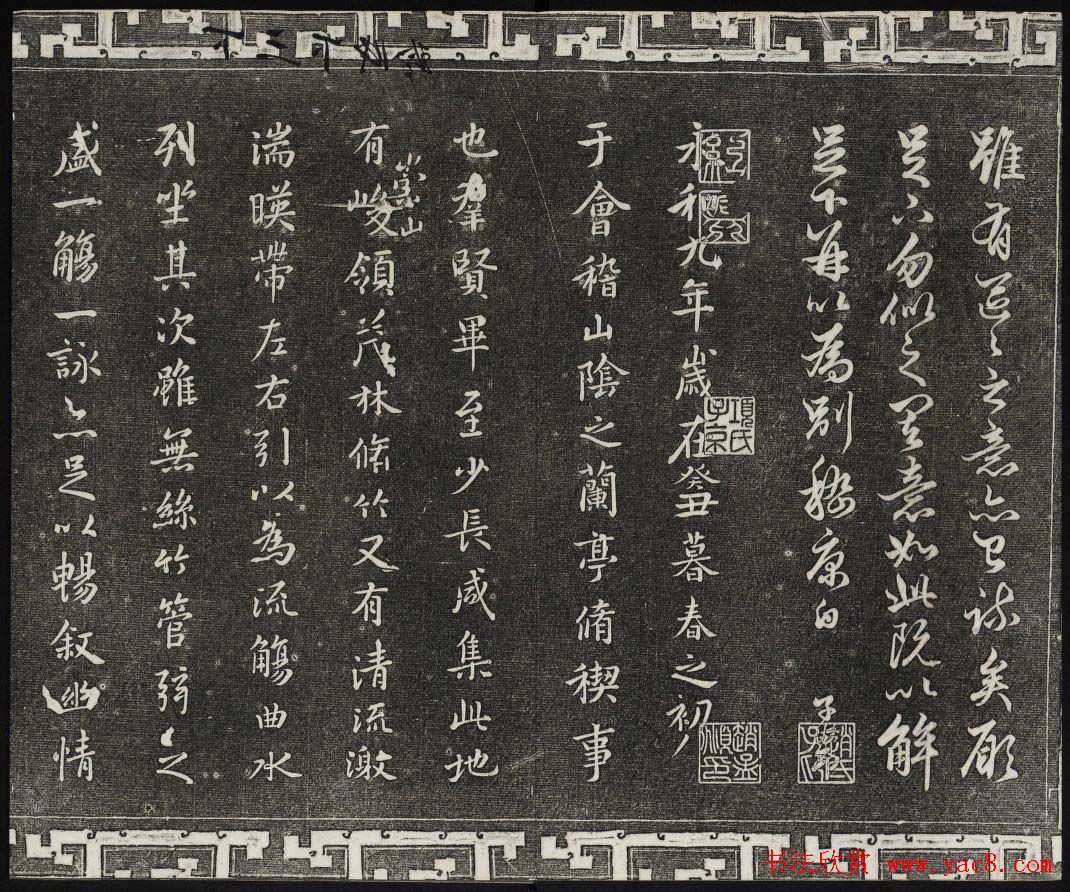 雖有區區之意亦已疏矣願
足下勿似之其意如此既以解
足下并以為別嵇康白
永和九年歲在癸丑暮春之初
于會稽山陰之蘭亭脩禊事
也羣賢畢至少長咸集此地
有峻領茂林脩竹又有清流激
崇山
湍暎帶左右引以為流觴曲水
列坐其次雖無絲竹管弦之
盛一觴一詠亦足以暢敘幽情
項氏子京
书法欣赏 www.yac8.com